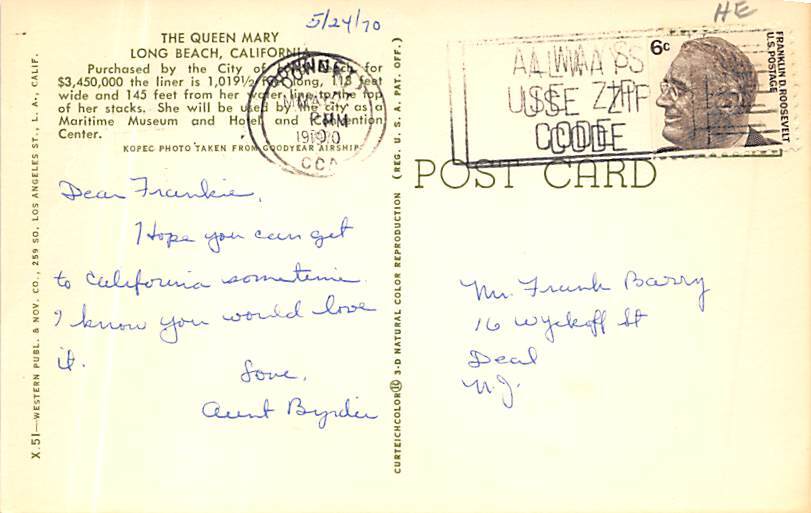 5/24/70
HE
THE QUEEN MARY
LONG BEACH, CALIFORNIA
Purchased by the City of Long Beach for
$3,450,000 the liner is 1,019½ feet long, 118 feet
wide and 145 feet from her water line to the top
of her stacks. She will be used by the city as a
Maritime Museum and Hotel and Convention
Center.
KOPEC PHOTO TAKEN FROM GOODYEAR AIRSHIP
DOWNEY
PM
1970
CA
ALWAYS
USE ZIP
CODE
6c
FRANKLIN D. ROOSEVELT
U.S. POSTAGE
POST CARD
Dear Frankie,
I Hope you can get
to California sometime.
I know you would love
it.
Love,
Aunt Byrdie
Mr. Frank Barry
16 Wyckoff St
Deal
N.J.
X.51—WESTERN PUBL. & NOV. CO., 259 SO. LOS ANGELES ST., L. A., CALIF.
CURTEICHCOLOR® 3-D NATURAL COLOR REPRODUCTION (REG. U. S. A. PAT. OFF.)